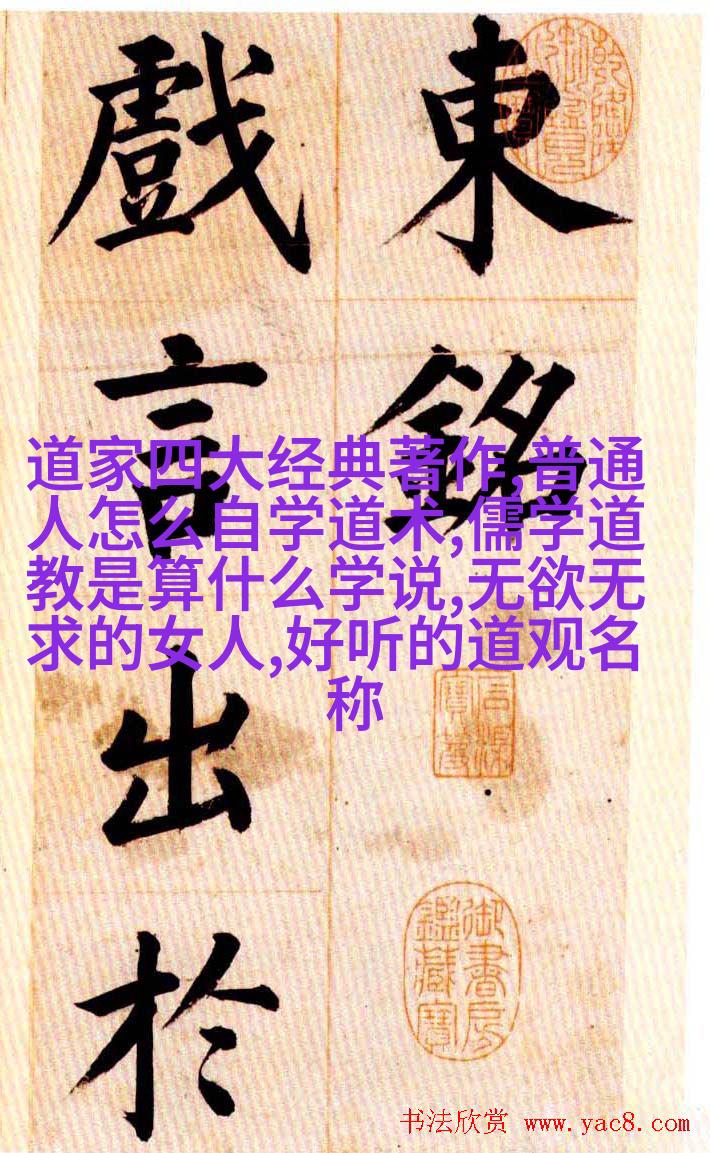 東銘
戲言出於
道家四大经典著作,普通
人怎么自学道术,儒学道
教是算什么学说,无欲无
求的女人,好听的道观名
称
御書房
鑑藏寶
书法欣赏 www.yac8.com